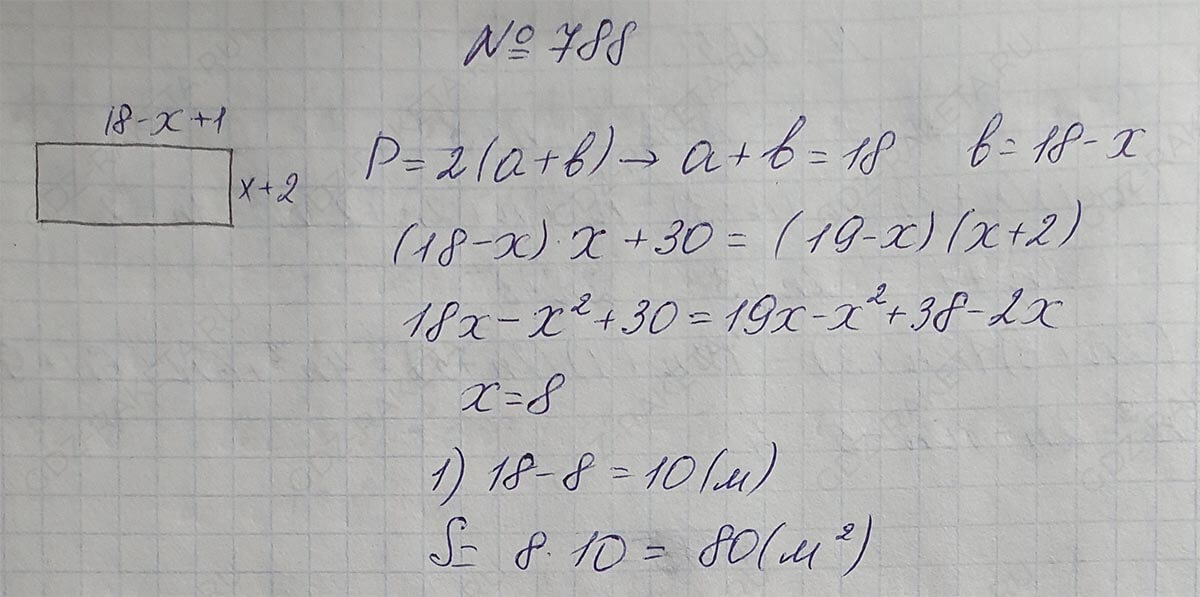 № 788
18-x+1
x+2
P=2(a+b)→ a+b=18 b=18-x
(18-x)·x+30=(19-x)(x+2)
18x-x²+30=19x-x²+38-2x
x=8
1) 18-8=10(м)
S= 8·10= 80(м²)